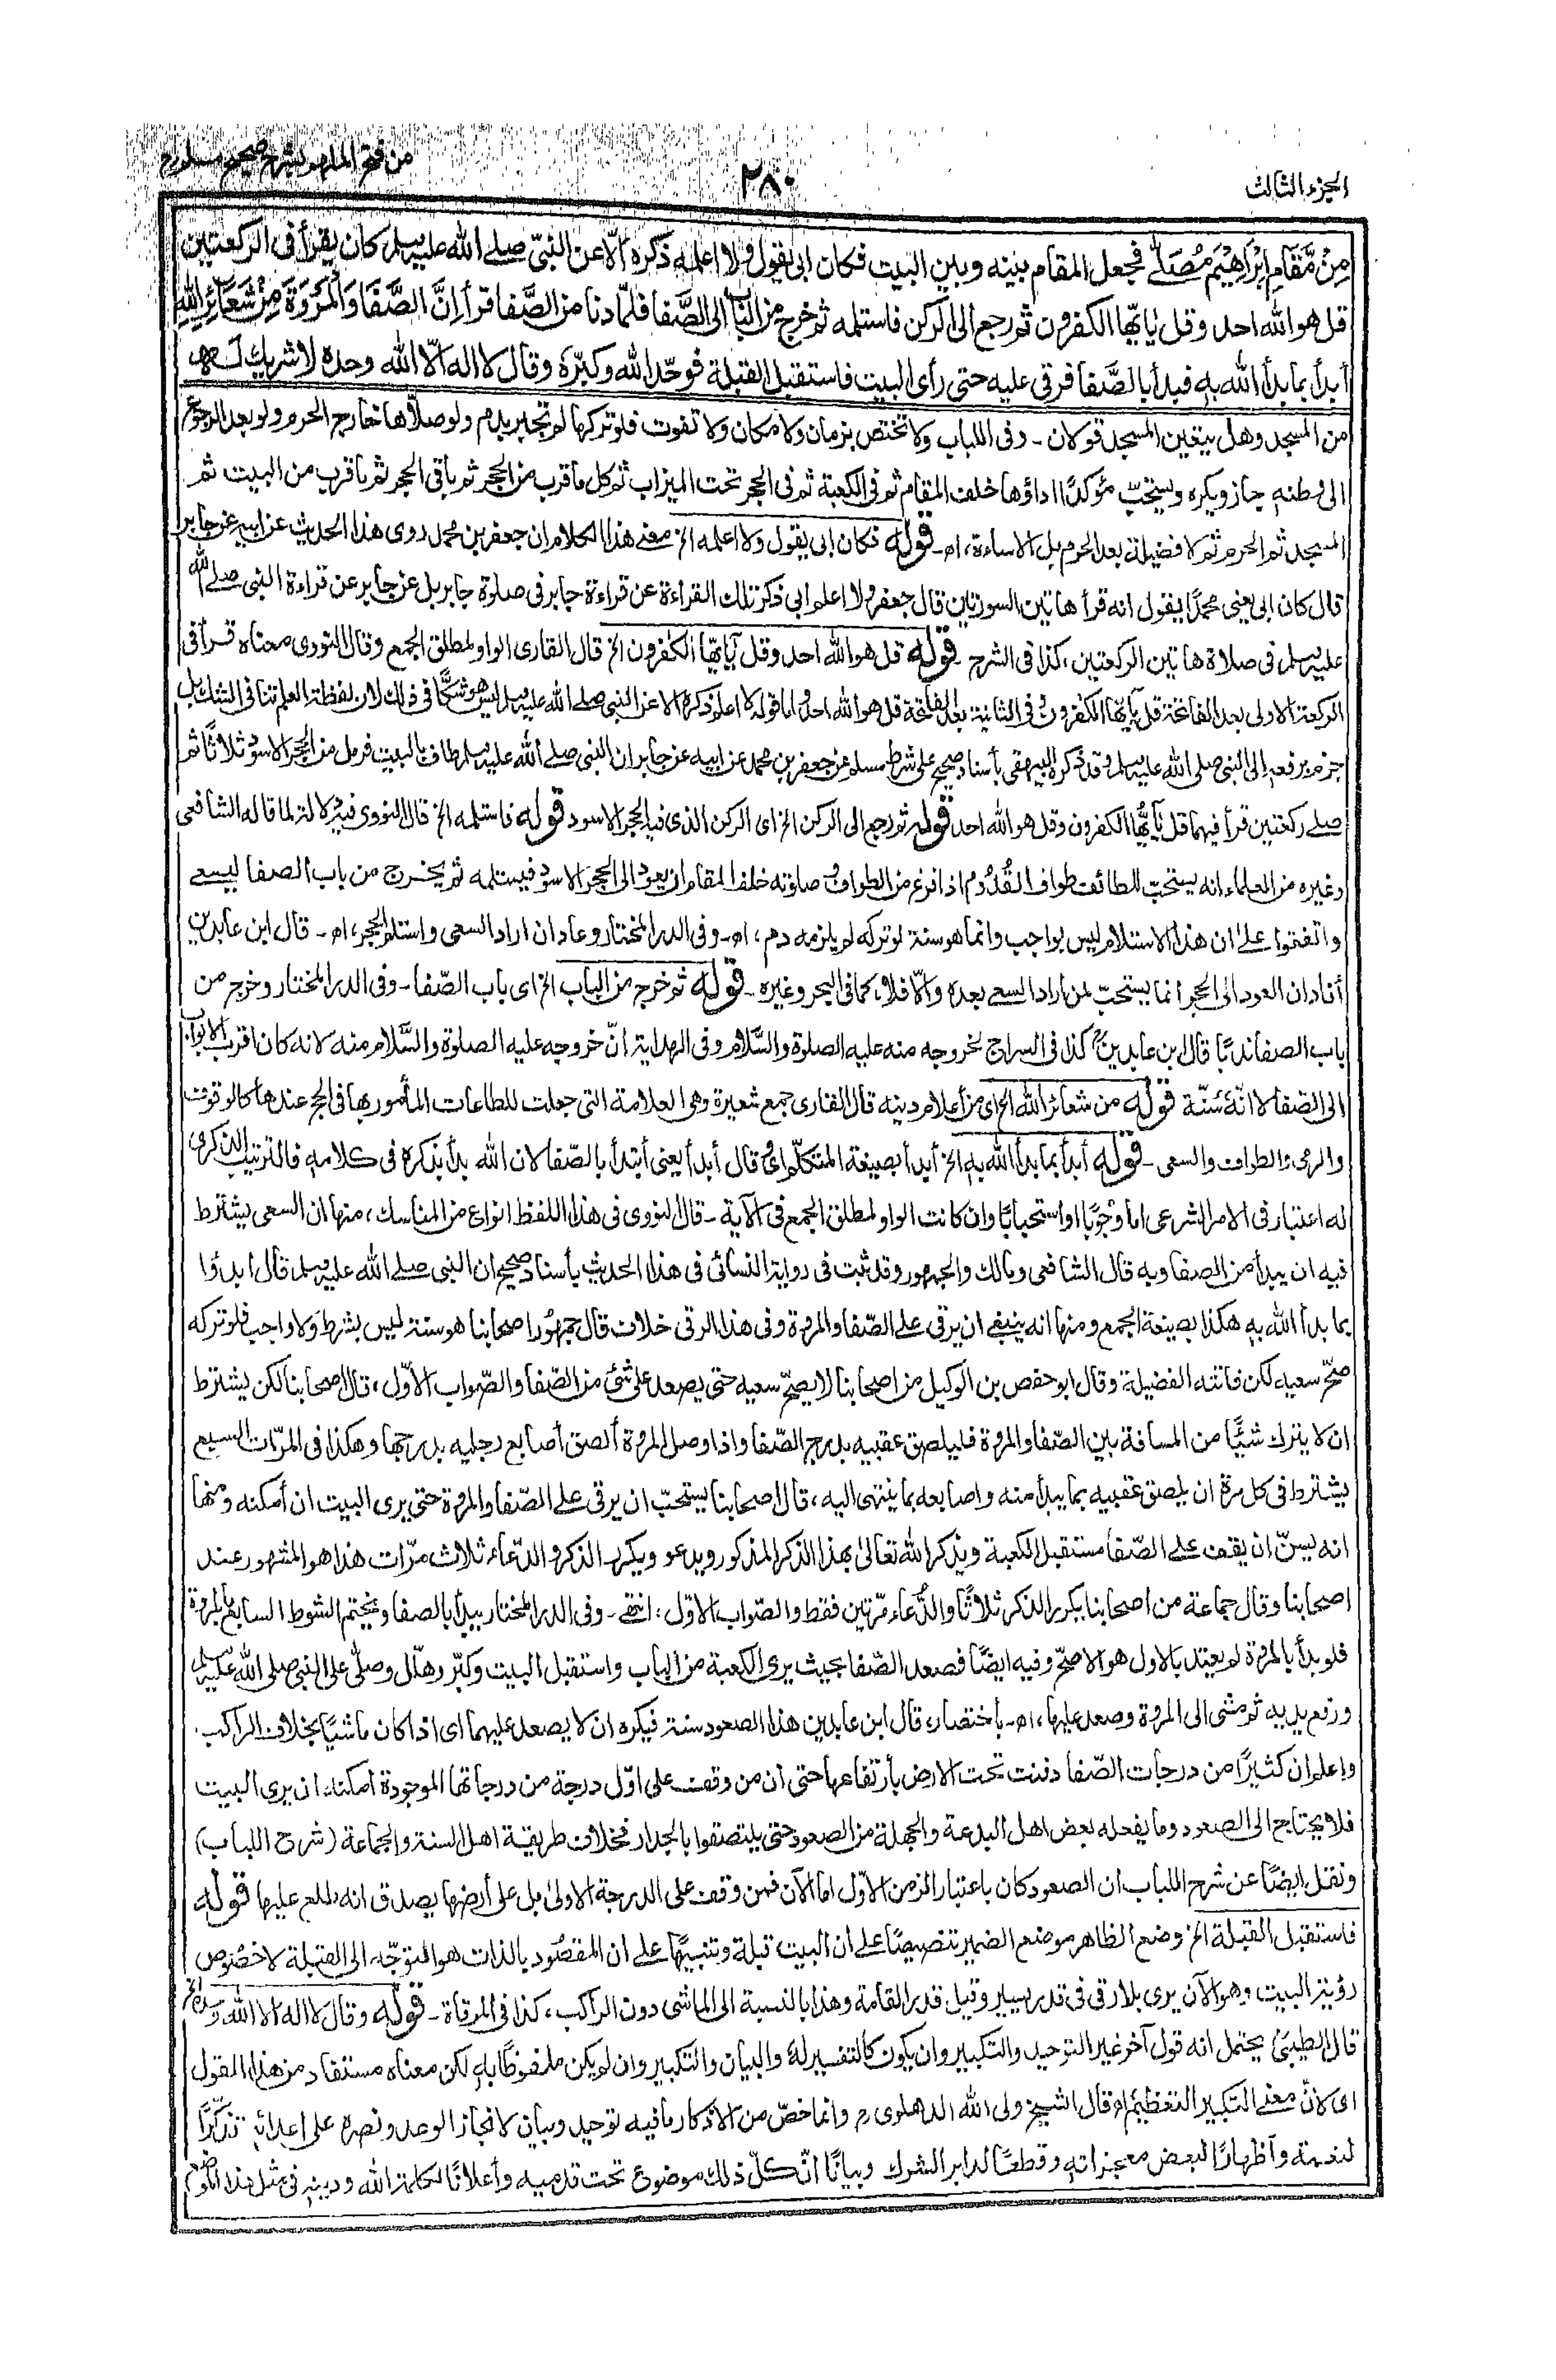 الجزء الثالث
٢٨٠
من فتح الملهم بشرح صحيح مسلم
مِنْ مَّقَامِ اِبْرَاهِيْمَ مُصَلًّے فجعل المقام بينه وبين البيت فكان ابى يقول ولا اعلمه ذكره الّا عن النبىّ صلے الله عليه وسلم كان يقرأ فى الركعتين
قل هو الله احد وقل يٰايّها الكٰفرون ثم رجع الى الركن فاستلمه ثم خرج من الباب الى الصَّفا فلمّا دنا من الصَّفا قرأ اِنَّ الصَّفَا وَالْمَرْوَةَ مِنْ شَعَآئِرِ اللّٰهِ
أبدأ بما بدأ الله به فبدأ بالصَّفا فرقى عليه حتى رأى البيت فاستقبل القبلة فوحّد الله وكبّره وقال لا اله الّا الله وحده لا شريك له
من المسجد وهل يتعين المسجد قولان ـ وفى اللباب ولا تختص بزمان ولا مكان ولا تفوت فلو تركها لم تجبر بدم ولو صلّاها خارج الحرم ولو بعد الرجوع
الى وطنه جاز ويكره ويستحبّ مؤكدًا اداؤها خلف المقام ثم فى الكعبة ثم فى الحجر تحت الميزاب ثم كل ما قرب من الحجر ثم باقى الحجر ثم ما قرب من البيت ثم
المسجد ثم الحرم ثم لا فضيلة بعد الحرم بل الاساءة، اھ ـ قوله فكان ابى يقول ولا اعلمه الخ معنے هذا الكلام ان جعفر بن محمد روى هذا الحديث عن ابيه عن جابر
قال كان ابى يعنى محمدًا يقول انه قرأ هاتين السورتين قال جعفر ولا اعلم ابى ذكر تلك القراءة عن قراءة جابر فى صلوة جابر بل عن جابر عن قراءة النبى صلے الله
عليه وسلم فى صلاة هاتين الركعتين، كذا فى الشرح ـ قوله قل هو الله احد وقل يٰايّها الكٰفرون الخ قال القارى الواو لمطلق الجمع وقال النووى معناه قرأ فى
الركعة الاولى بعد الفاتحة قل يٰايّها الكٰفرون وفى الثانية بعد الفاتحة قل هو الله احد واما قوله لا اعلم ذكره الا عن النبى صلے الله عليه وسلم ليس هو شكًّا فى ذلك لان لفظة العلم تنافى الشك بل
جزم برفعه الى النبى صلى الله عليه وسلم وقد ذكره البيهقى بأسناد صحيح على شرط مسلم عن جعفر بن محمد عن ابيه عن جابر ان النبى صلے الله عليه وسلم طاف بالبيت فرمل من الحجر الاسود ثلاثًا ثم
صلے ركعتين قرأ فيهما قل يٰايّها الكٰفرون وقل هو الله احد قوله ثم رجع الى الركن الخ اى الركن الذى فيه الحجر الاسود قوله فاستلمه الخ قال النووى فيه دلالة لما قاله الشافعى
وغيره من العلماء انه يستحبّ للطائف طواف القُدُوم اذا فرغ من الطواف وصلوته خلف المقام ان يعود الى الحجر الاسود فيستلمه ثم يخرج من باب الصفا ليسعے
واتفقوا علے ان هذا الاستلام ليس بواجب وانما هو سنة لو تركه لم يلزمه دم، اھ ـ وفى الدر المختار وعاد ان اراد السعى واستلم الحجر، اھ ـ قال ابن عابدين
أفاد ان العود الى الحجر أنما يستحبّ لمن اراد السعے بعده والّا فلا، كما فى البحر وغيره ـ قوله ثم خرج من الباب الخ اى باب الصّفا ـ وفى الدر المختار وخرج من
باب الصفا ندبًا قال ابن عابدين كذا فى السراج لخروجه منه عليه الصلوة والسَّلام وفى الهداية انّ خروجه عليه الصلوة والسَّلام منه لانه كان اقرب الابواب
الى الصّفا لا انّه سُنّة قوله من شعائر الله الخ اى من أعلام دينه قال القارى جمع شعيرة وهى العلامة التى جعلت للطاعات المأمور بها فى الحج عندها كالوقوف
والرمى والطواف والسعى ـ قوله أبدأ بما بدأ الله به الخ أبدأ بصيغة المتكلّم اى وقال أبدأ يعنى أبتدأ بالصّفا لان الله بدأ بذكره فى كلامه فالترتيب الذكرى
له اعتبار فى الامر الشرعى اما وُجُوبًا او استحبابًا وان كانت الواو لمطلق الجمع فى الآية ـ قال النووى فى هذا اللفظ انواع من المناسك، منها ان السعى يشترط
فيه ان يبدأ من الصفا وبه قال الشافعى ومالك والجمهور وقد ثبت فى رواية النسائى فى هذا الحديث بأسناد صحيح ان النبى صلے الله عليه وسلم قال ابدؤا
بما بدأ الله به هكذا بصيغة الجمع ومنها انه ينبغے ان يرقى علے الصّفا والمروة وفى هذا الرقى خلاف قال جمهُورُ اصحابنا هو سنة ليس بشرط وَلا واجب فلو تركه
صحّ سعيه لكن فاتته الفضيلة وقال ابو حفص بن الوكيل من اصحابنا لا يصحّ سعيه حتى يصعد على شئ من الصّفا والصّواب الاوّل، قال اصحابنا لكن يشترط
ان لا يترك شيئًا من المسافة بين الصّفا والمروة فليلصق عقبيه بدرج الصّفا واذا وصل المروة ألصق أصابع رجليه بدرجها وهكذا فى المرّات السبع
يشترط فى كل مرة ان يلصق عقبيه بما يبدأ منه واصابعه بما ينتهى اليه، قال اصحابنا يستحبّ ان يرقى علے الصّفا والمروة حتى يرى البيت ان أمكنه ومنها
انه يسنّ ان يقف علے الصّفا مستقبل الكعبة ويذكر الله تعالىٰ بهذا الذكر المذكور ويدعو ويكرر الذكر والدّعاء ثلاث مرّات هذا هو المشهور عند
اصحابنا وقال جماعة من اصحابنا يكرر الذكر ثلاثًا والدُّعاء مرّتين فقط والصّواب الاوّل، انتهے ـ وفى الدر المختار يبدأ بالصفا ويختم الشوط السابع بالمروة
فلو بدأ بالمروة لم يعتد بالاول هو الاصحّ وفيه ايضًا فصعد الصّفا بحيث يرى الكعبة من الباب واستقبل البيت وكبّر وهلّل وصلّى على النبى صلى الله عليه وسلم
ورفع يديه ثم مشى الى المروة وصعد عليها، اھ ـ باختصار، قال ابن عابدين هذا الصعود سنة فيكره ان لا يصعد عليهما اى اذا كان ماشيًا بخلاف الراكب.
واعلم ان كثيرًا من درجات الصّفا دفنت تحت الارض بأرتفاعها حتى أن من وقف على اوّل درجة من درجاتها الموجودة أمكنه ان يرى البيت
فلا يحتاج الى الصعود وما يفعله بعض اهل البدعة والجهلة من الصعود حتى يلتصقوا بالجدار فخلاف طريقة اهل السنة والجماعة (شرح اللباب)
ونقل ايضًا عن شرح اللباب أن الصعود كان باعتبار الزمن الاوّل اما الآن فمن وقف على الدرجة الاولىٰ بل على أرضها يصدق انه طلع عليها قوله
فاستقبل القبلة الخ وضع الظاهر موضع الضمير تنصيصًا على أن البيت قبلة وتنبيهًا على ان المقصُود بالذات هو التوجّه الى القبلة لا خصُوص
رؤية البيت وهو الآن يرى بلا رقى فى قدر يسير وقيل قدر القامة وهذا بالنسبة الى الماشى دون الراكب، كذا فى المرقاة ـ قوله وقال لا اله الا الله وحده الخ
قال الطيبىّ يحتمل انه قول آخر غير التوحيد والتكبير وان يكون كالتفسير له والبيان والتكبير وان لم يكن ملفوظًا به لكن معناه مستفاد من هذا المقول
اى لانّ معنے التكبير التعظيم اھ قال الشيخ ولى الله الدهلوى رح وانما خصّ من الاذكار ما فيه توحيد وبيان لانجاز الوعد ونصره على اعدائه تذكّرًا
لنعمة واظهارًا لبعض معجزاته وقطعًا لدابر الشرك وبيانًا انّ كلّ ذلك موضوع تحت قدميه وأعلانًا لكلمة الله ودينه فى مثل هذا